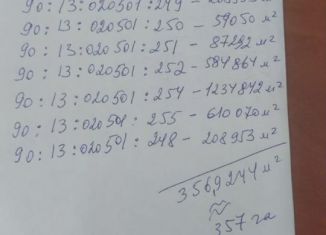 90:13:020501:249 -
90:13:020501:250 - 59050 м²
90:13:020501:251 - 87292 м²
90:13:020501:252 - 584864 м²
90:13:020501:254 - 1234842 м²
90:13:020501:255 - 610070 м²
90:13:020501:248 - 208953 м²
3569,244 м²
≈
357 га